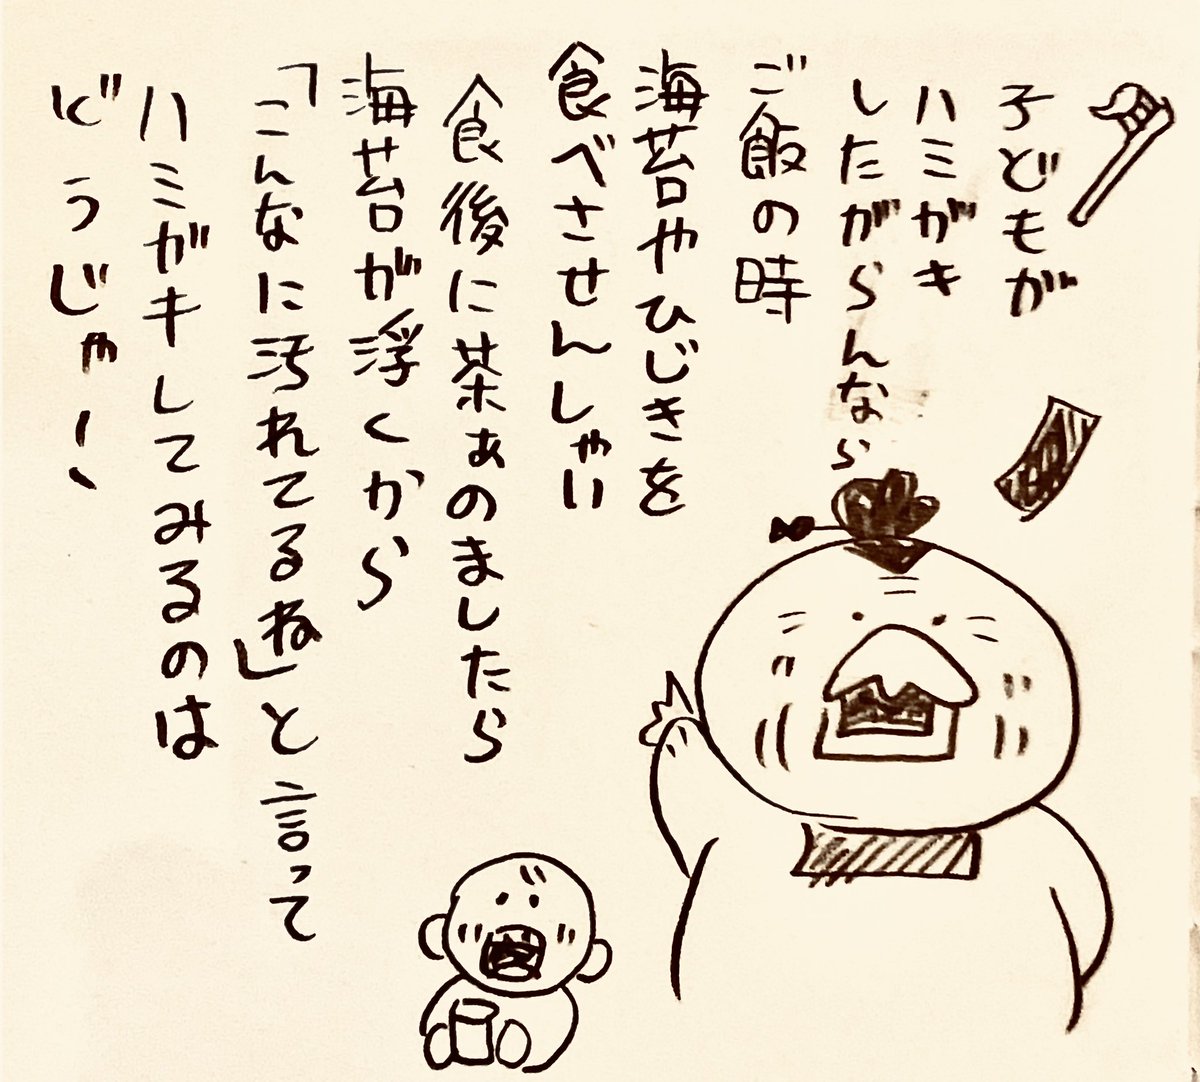 子どもが
ハミがき
したがらんなら
ご飯の時
海苔やひじきを
食べさせんしゃい
食後に茶ぁのましたら
海苔が浮くから
「こんなに汚れてるね」と言って
ハミガキしてみるのは
どうじゃー